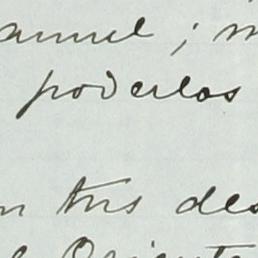 anuel ; m
poderlos
n tus des
l Orient